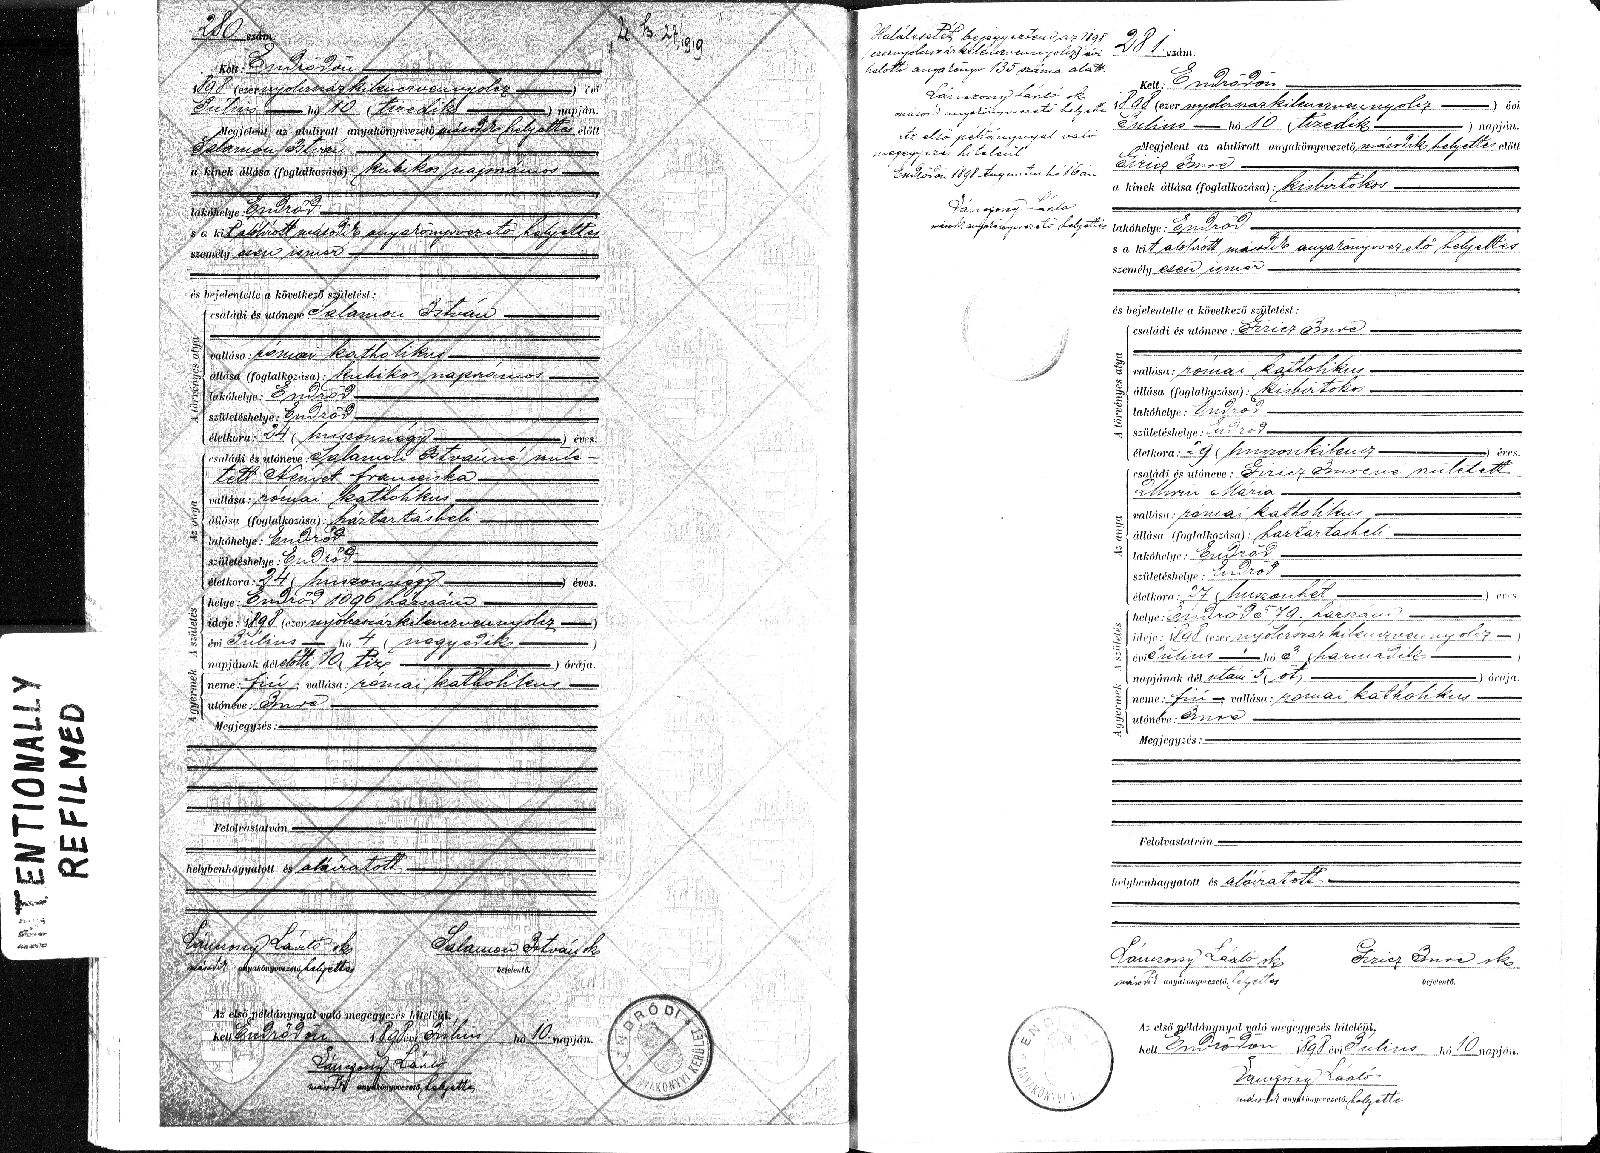 280 szám.
Kelt: Endrődön
1898 (ezernyolcszázkilencvennyolcz) évi
Július hó 10 (tizedik) napján.
Megjelent az alulirott anyakönyvezető második helyettes előtt
Salamon István
a kinek állása (foglalkozása): kubikos napszámos
lakóhelye: Endrőd
s a kit alolirott második anyakönyvvezető helyettes
személyesen ismer
és bejelentette a következő születést:
A törvényes atya
családi és utóneve Salamon István
vallása: római katholikus
állása (foglalkozása): kubikos napszámos
lakóhelye: Endrőd
születéshelye: Endrőd
életkora: 24 (huszonnégy) éves.
Az anya
családi és utóneve: Salamon Istvánné szüle-
tett Német Franciska
vallása: római katholikus
állása (foglalkozása): háztartásbeli
lakóhelye: Endrőd
születéshelye: Endrőd
életkora: 24 (huszonnégy) éves.
A születés
helye: Endrőd 1096 házszám
ideje: 1898 (ezernyolcszázkilencvennyolcz)
évi Július hó 4 (negyedik)
napjának délelőtti 10 (tiz) órája.
A gyermek
neme: fiú; vallása: római katholikus
utóneve: Imre
Megjegyzés:
Felolvastatván
helybenhagyatott és aláiratott
Lánczony László sk
második anyakönyvvezető helyettes
Salamon István sk
bejelentő.
Az első példánynyal való megegyezés hiteléül,
Kelt Endrődön 1898 évi Július hó 10 napján.
Lánczony László
második anyakönyvvezető, helyettes
ENDRŐDI KERÜLET ANYAKÖNYVI
TENTIONALLY
REFILMED
Halálesetét bejegyeztem az 1898
ezernyolcszázkilencvennyolcz évi
halotti anyakönyv 135 száma alatt.
Lánczony László sk
másod anyakönyvvezető helyettes
Az első példánnyal való
megegyezés hiteléül
Endrődön 1898 Augusztus hó 16án
Lánczony László
másod. anyakönyvvezető helyettes
281 szám.
Kelt: Endrődön
1898 (ezernyolcszázkilencvennyolcz) évi
Július hó 10 (tizedik) napján.
Megjelent az alulirott anyakönyvezető, második helyettes előtt
Giricz Imre
a kinek állása (foglalkozása): kisbirtokos
lakóhelye: Endrőd
s a kit alolirott második anyakönyvvezető helyettes
személyesen ismer
és bejelentette a következő születést:
A törvényes atya
családi és utóneve: Giricz Imre
vallása: római katholikus
állása (foglalkozása): kisbirtokos
lakóhelye: Endrőd
születéshelye: Endrőd
életkora: 29 (huszonkilencz) éves.
Az anya
családi és utóneve: Giricz Imréné született
Mária
vallása: római katholikus
állása (foglalkozása): háztartásbeli
lakóhelye: Endrőd
születéshelye: Endrőd
életkora: 27 (huszonhét) éves
A születés
helye: Endrőd 579 házszám
ideje: 1898 (ezernyolcszázkilencvennyolcz)
évi Július hó 3 (harmadik)
napjának dél utáni 5 (öt) órája.
A gyermek
neme: fiú vallása: római katholikus
utóneve: Imre
Megjegyzés:
Felolvastatván
helybenhagyatott és aláiratott
Lánczony László sk
második anyakönyvvezető, helyettes
Giricz Imre sk
bejelentő.
Az első példánynyal való megegyezés hiteléül,
Kelt Endrődön 1898 évi Július hó 10 napján.
Lánczony László
második anyakönyvvezető, helyettes